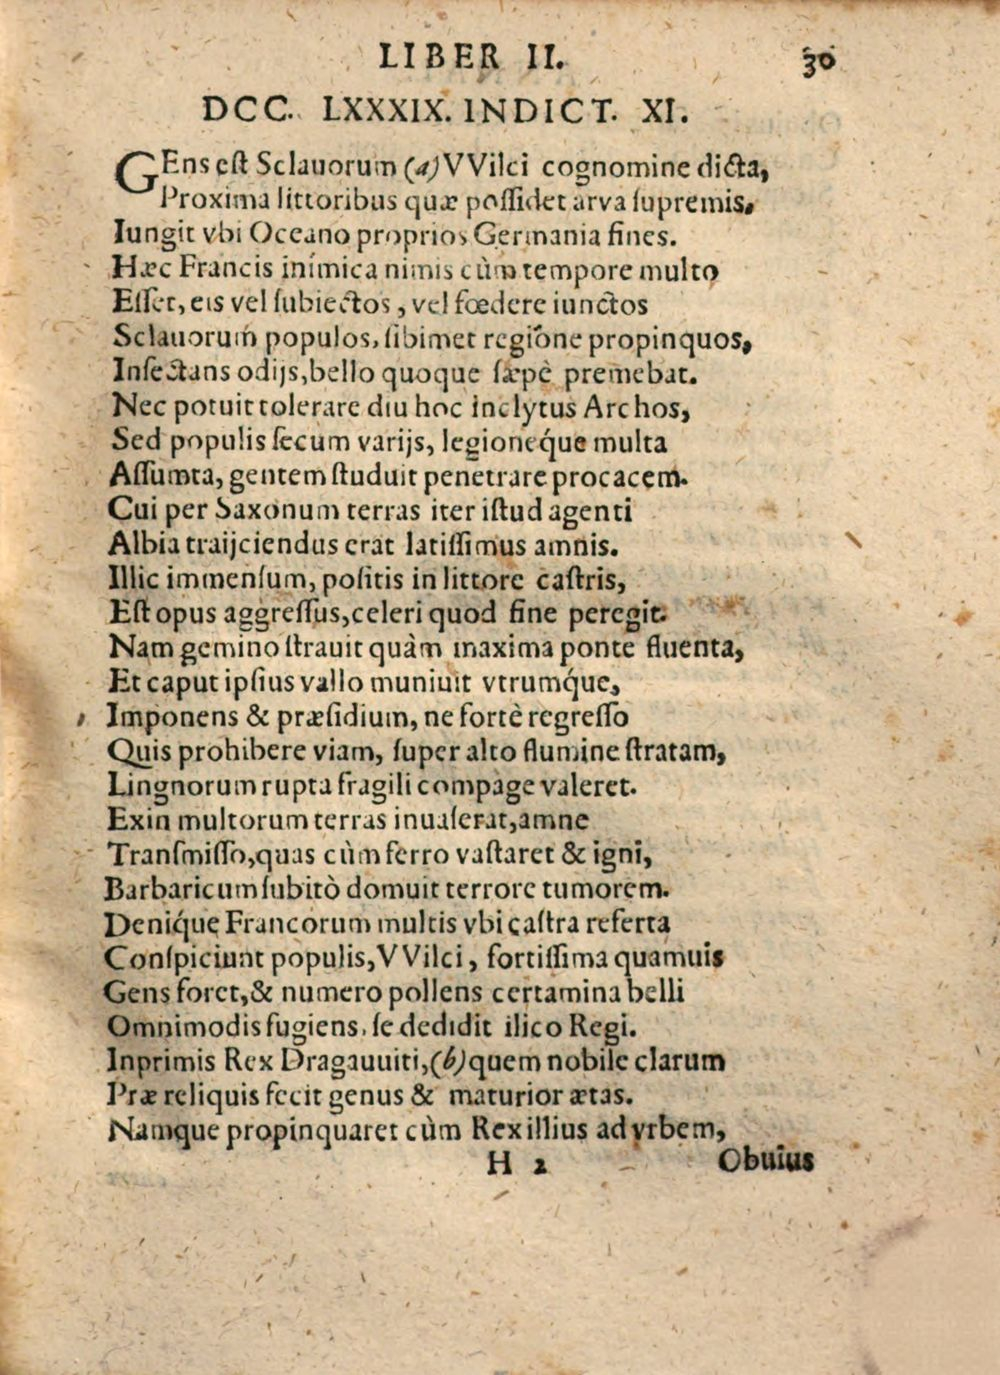 LIBER II. 30
DCC. LXXXIX. INDICT. XI.
GEns est Sclauorum (a) VVilci cognomine dicta,
Proxima littoribus quæ possidet arva supremis,
Iungit vbi Oceano proprios Germania fines.
Hæc Francis inimica nimis cùm tempore multo
Esset, eis vel subiectos, vel fœdere iunctos
Sclauorum populos, sibimet regione propinquos,
Insectans odijs, bello quoque sæpè premebat.
Nec potuit tolerare diu hoc inclytus Archos,
Sed populis secum varijs, legioneq́ue multa
Assumta, gentem studuit penetrare procacem.
Cui per Saxonum terras iter istud agenti
Albia traijciendus erat latissimus amnis.
Illic immensum, positis in littore castris,
Est opus aggressus, celeri quod fine peregit.
Nam gemino stravit quàm maxima ponte fluenta,
Et caput ipsius vallo muniuit vtrumq́ue,
Imponens & præsidium, ne fortè regresso
Quis prohibere viam, super alto flumine stratam,
Lingnorum rupta fragili compage valeret.
Exin multorum terras inuaserat, amne
Transmisso, quas cùm ferro vastaret & igni,
Barbaricum subitò domuit terrore tumorem.
Deniq́ue Francorum multis vbi castra referta
Conspiciunt populis, VVilci, fortissima quamuis
Gens foret, & numero pollens certamina belli
Omnimodis fugiens, se dedidit ilico Regi.
Inprimis Rex Dragauuiti, (b) quem nobile clarum
Præ reliquis fecit genus & maturior ætas.
Namque propinquaret cùm Rex illius ad vrbem,
H 2 Obuius